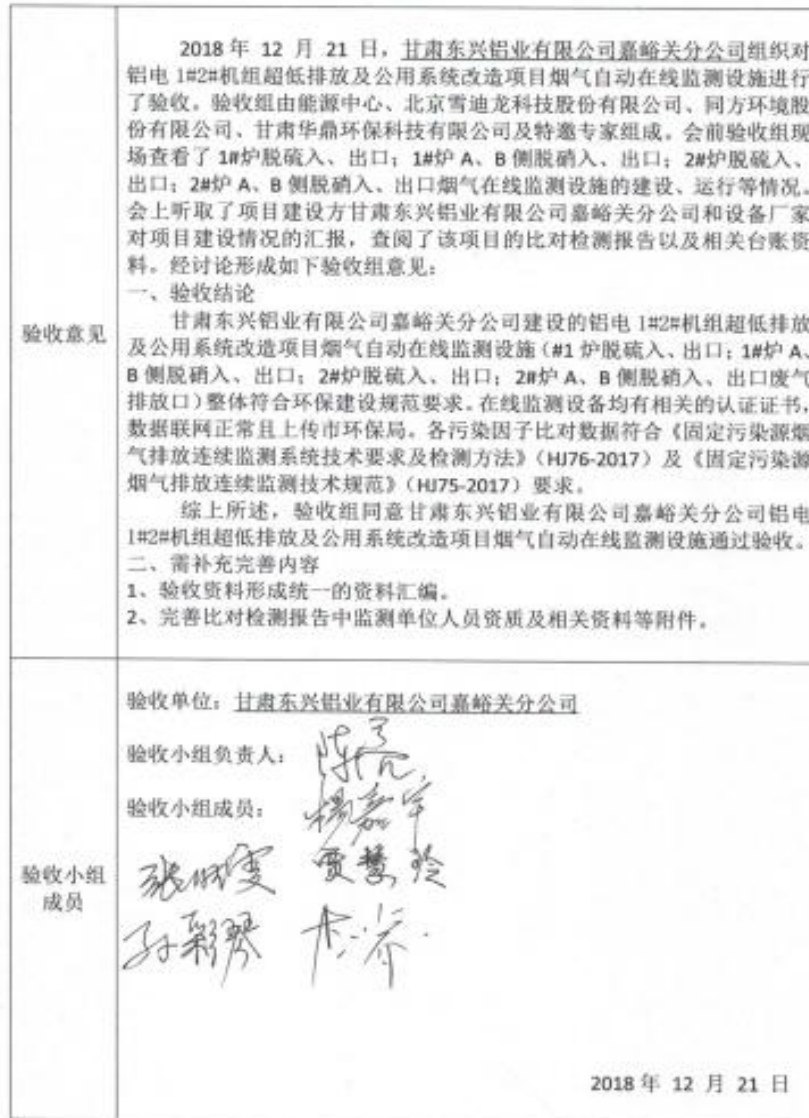 验收意见
2018 年 12 月 21 日，甘肃东兴铝业有限公司嘉峪关分公司组织对
铝电 1#2#机组超低排放及公用系统改造项目烟气自动在线监测设施进行
了验收。验收组由能源中心、北京雪迪龙科技股份有限公司、同方环境股
份有限公司、甘肃华鼎环保科技有限公司及特邀专家组成。会前验收组现
场查看了 1#炉脱硫入、出口；1#炉 A、B 侧脱硝入、出口；2#炉脱硫入、
出口；2#炉 A、B 侧脱硝入、出口烟气在线监测设施的建设、运行等情况。
会上听取了项目建设方甘肃东兴铝业有限公司嘉峪关分公司和设备厂家
对项目建设情况的汇报，查阅了该项目的比对检测报告以及相关台账资
料。经讨论形成如下验收组意见：
一、验收结论
甘肃东兴铝业有限公司嘉峪关分公司建设的铝电 1#2#机组超低排放
及公用系统改造项目烟气自动在线监测设施（#1 炉脱硫入、出口；1#炉 A、
B 侧脱硝入、出口；2#炉脱硫入、出口；2#炉 A、B 侧脱硝入、出口废气
排放口）整体符合环保建设规范要求。在线监测设备均有相关的认证证书，
数据联网正常且上传市环保局。各污染因子比对数据符合《固定污染源烟
气排放连续监测系统技术要求及检测方法》（HJ76-2017）及《固定污染源
烟气排放连续监测技术规范》（HJ75-2017）要求。
综上所述，验收组同意甘肃东兴铝业有限公司嘉峪关分公司铝电
1#2#机组超低排放及公用系统改造项目烟气自动在线监测设施通过验收。
二、需补充完善内容
1、验收资料形成统一的资料汇编。
2、完善比对检测报告中监测单位人员资质及相关资料等附件。
验收小组
成员
验收单位：甘肃东兴铝业有限公司嘉峪关分公司
验收小组负责人：陈亮
验收小组成员：杨嘉宇
贾慧玲
孙彩琴
2018 年 12 月 21 日